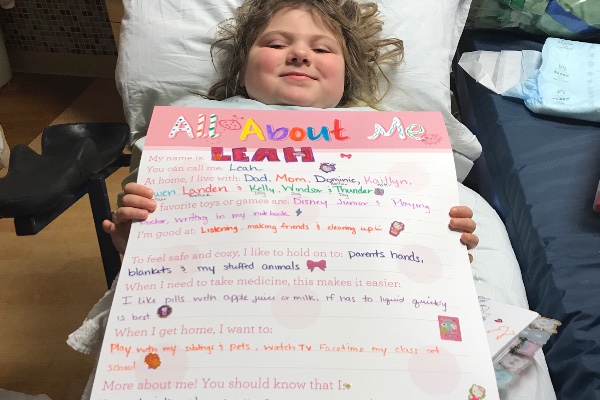 All About Me
My name is LEAH
You can call me: Leah
At home, I live with Dad, Mom, Dominic, Kaitlyn,
Owen, Landen & Kelly, Windsor & Thunder
favorite toys or games are: Disney Junior & Playing
Doctor, writing in my notebook
I'm good at: Listening, making friends & cleaning up!
To feel safe and cozy, I like to hold on to: parents hands,
blankets & my stuffed animals
When I need to take medicine, this makes it easier:
I like pills with apple juice or milk, if has to liquid quickly
is best
When I get home, I want to:
Play with my siblings & pets, watch TV. Facetime my class at
school
More about me! You should know that I: